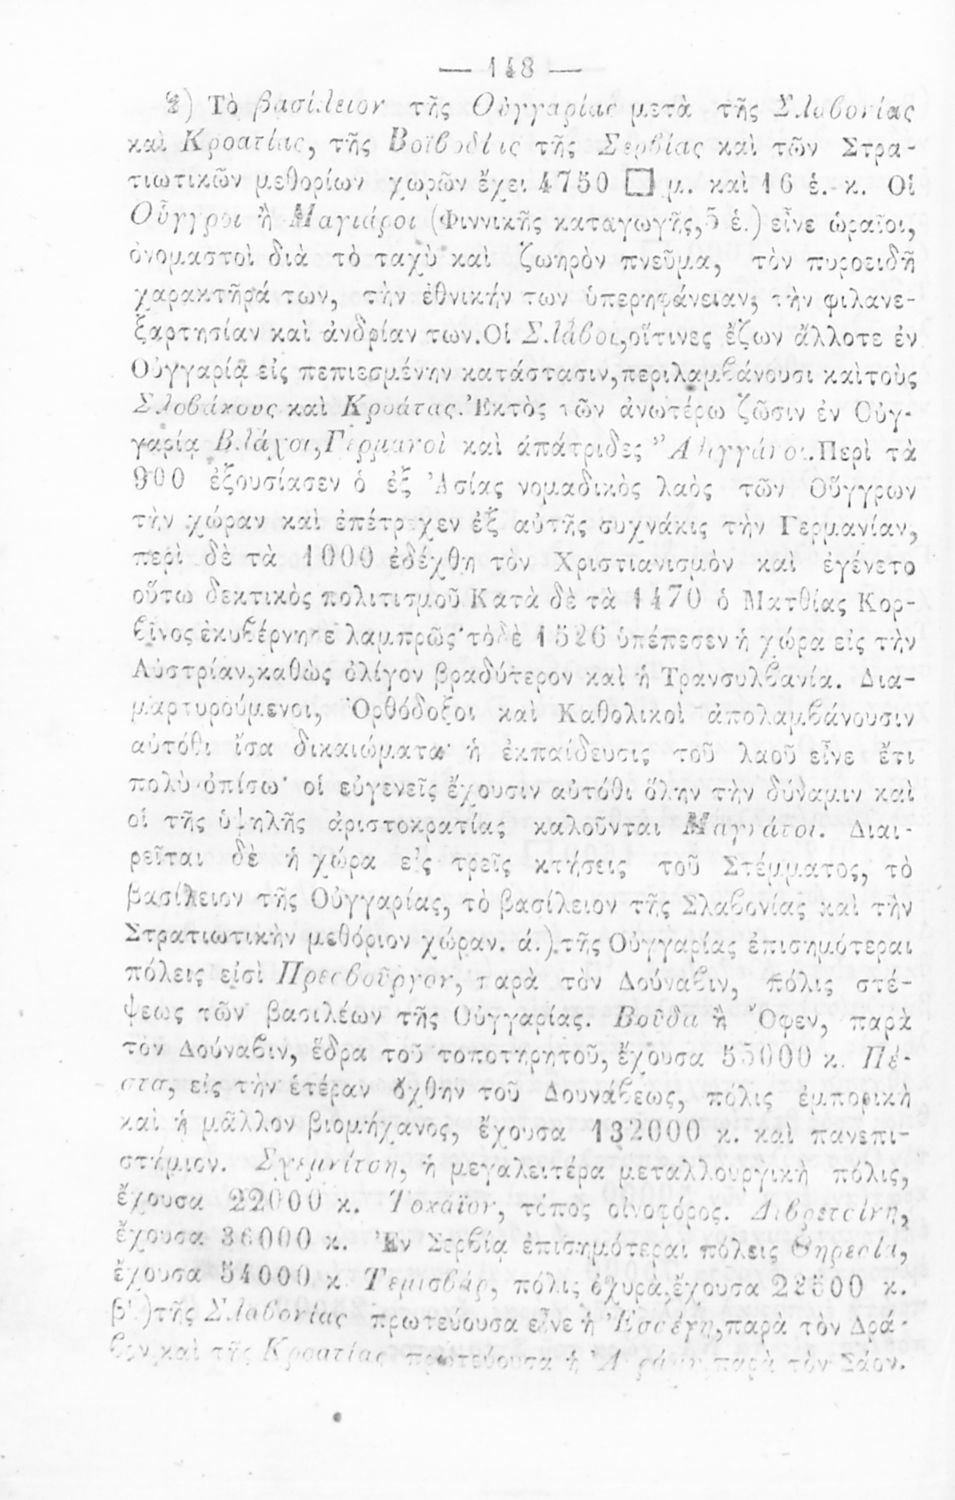 — 148 —
2) Τὸ βασίλειον τῆς Οὑγγαρίας μετὰ τῆς Σλαβονίας
καὶ Κροατίας, τῆς Βοϊβοδίας τῆς Σερβίας καὶ τῶν Στρα-
τιωτικῶν μεθορίων χωρῶν ἔχει 4750 □ μ. καὶ 16 ἑ. κ. Οἱ
Οὗγγροι ἢ Μαγιάροι (Φιννικῆς καταγωγῆς, 5 ἑ.) εἶνε ὡραῖοι,
ὀνομαστοὶ διὰ τὸ ταχὺ καὶ ζωηρὸν πνεῦμα, τὸν πυροειδῆ
χαρακτῆρά των, τὴν ἐθνικήν των ὑπερηφάνειαν, τὴν φιλανε-
ξαρτησίαν καὶ ἀνδρίαν των. Οἱ Σλάβοι, οἵτινες ἔζων ἄλλοτε ἐν
Οὑγγαρίᾳ εἰς πεπιεσμένην κατάστασιν, περιλαμβάνουσι καὶ τοὺς
Σλοβάκους καὶ Κροάτας. Ἐκτὸς τῶν ἀνωτέρω ζῶσιν ἐν Οὑγ-
γαρίᾳ Βλάχοι, Γερμανοὶ καὶ ἀπάτριδες Ἀθιγγάνοι. Περὶ τὰ
900 ἐξουσίασεν ὁ ἐξ Ἀσίας νομαδικὸς λαὸς τῶν Οὕγγρων
τὴν χώραν καὶ ἐπέτρεχεν ἐξ αὐτῆς συχνάκις τὴν Γερμανίαν,
περὶ δὲ τὰ 1000 ἐδέχθη τὸν Χριστιανισμὸν καὶ ἐγένετο
οὕτω δεκτικὸς πολιτισμοῦ Κατὰ δὲ τὰ 1470 ὁ Ματθίας Κορ-
βῖνος ἐκυβέρνησε λαμπρῶς· τὸ δὲ 1526 ὑπέπεσεν ἡ χώρα εἰς τὴν
Αὐστρίαν, καθὼς ὀλίγον βραδύτερον καὶ ἡ Τρανσυλβανία. Δια-
μαρτυρούμενοι, Ὀρθόδοξοι καὶ Καθολικοὶ ἀπολαμβάνουσιν
αὐτόθι ἴσα δικαιώματα· ἡ ἐκπαίδευσις τοῦ λαοῦ εἶνε ἔτι
πολὺ ὀπίσω· οἱ εὐγενεῖς ἔχουσιν αὐτόθι ὅλην τὴν δύναμιν καὶ
οἱ τῆς ὑψηλῆς ἀριστοκρατίας καλοῦνται Μαγνάτοι. Διαι-
ρεῖται δὲ ἡ χώρα εἰς τρεῖς κτήσεις τοῦ Στέμματος, τὸ
βασίλειον τῆς Οὑγγαρίας, τὸ βασίλειον τῆς Σλαβονίας καὶ τὴν
Στρατιωτικὴν μεθόριον χώραν. ά.) τῆς Οὑγγαρίας ἐπισημότεραι
πόλεις εἰσὶ Πρεσβοῦργον, παρὰ τὸν Δούναβιν, πόλις στέ-
ψεως τῶν βασιλέων τῆς Οὑγγαρίας. Βοῦδα ἢ Ὄφεν, παρὰ
τὸν Δούναβιν, ἕδρα τοῦ τοποτηρητοῦ, ἔχουσα 55000 κ. Πέ-
στα, εἰς τὴν ἑτέραν ὄχθην τοῦ Δουνάβεως, πόλις ἐμπορικὴ
καὶ ἡ μᾶλλον βιομήχανος, ἔχουσα 132000 κ. καὶ πανεπι-
στήμιον. Σχεμνίτση, ἡ μεγαλειτέρα μεταλλουργικὴ πόλις,
ἔχουσα 22000 κ. Τοκάϊον, τόπος οἰνοφόρος. Διβρετσίνη,
ἔχουσα 36000 κ. Ἐν Σερβίᾳ ἐπισημότεραι πόλεις Θηρεσία,
ἔχουσα 54000 κ. Τεμισβάρ, πόλις ὀχυρὰ, ἔχουσα 22500 κ.
β'.) τῆς Σλαβονίας πρωτεύουσα εἶνε ἡ Ἐσσέγη, παρὰ τὸν Δρά-
βον, καὶ τῆς Κροατίας πρωτεύουσα ἡ παρὰ τὸν Σάον.